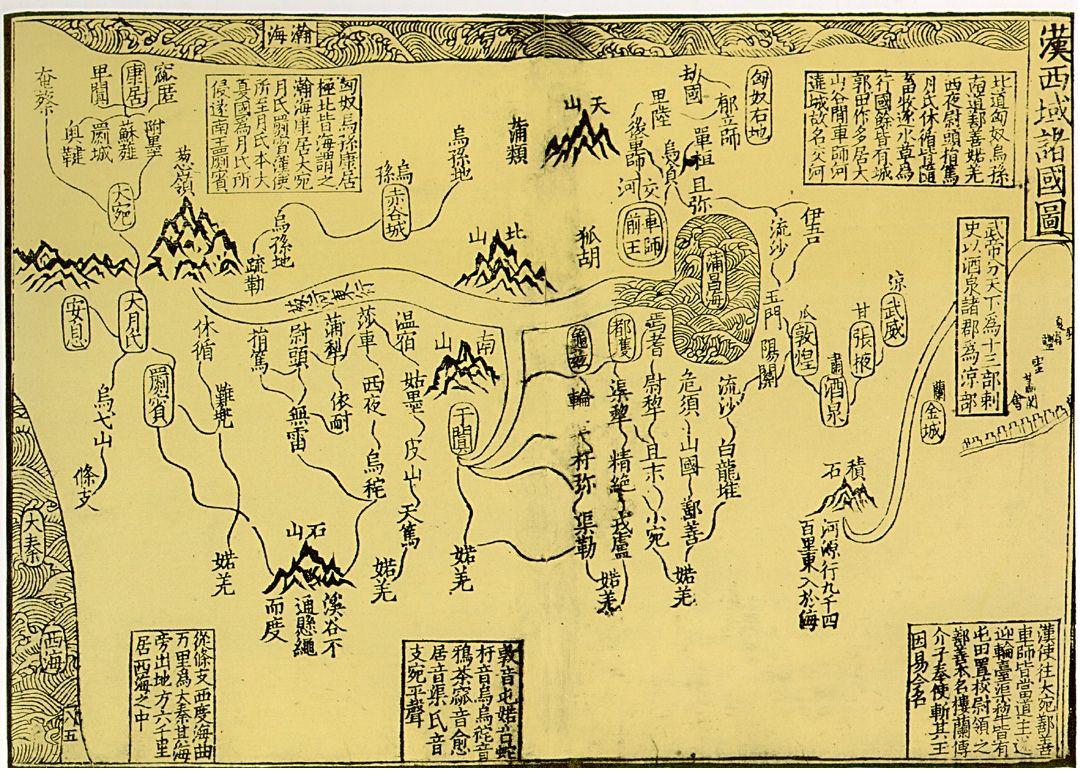 漢西域諸國圖
瀚海
北道匈奴烏孫
南道鄯善婼羌
西夜尉頭捐篤
月氏休循皆隨
畜牧逐水草爲
行國餘皆有城
郭田作多居大
山谷間車師河
遶城故名交河
武帝分天下爲十三部刺
史以酒泉諸郡爲涼部
匈奴右地
劫國
郁立師
卑陸
後車師
單桓
且弥
交河
車師前王
天山
蒲類
匈奴烏孫康居
極北皆海謂之
瀚海岸居大宛
月氏罽當漢使
所至月氏本大
夏國爲月氏所
侵遂南王罽賓
窳匿
康居
卑闐
奄蔡
附墨
蘇薤
罽城
奧鞬
大宛
葱嶺
烏孫地
烏孫
赤谷城
烏孫地
疏勒
北山
狐胡
蒲昌海
伊吾
流沙
玉門
陽關
瓜
敦煌
肅
酒泉
甘
張掖
涼
武威
蘭
金城
積石
河源行九千四
百里東入於海
大月氏
安息
罽賓
烏弋山
條支
休循
難兜
婼羌
捐篤
尉頭
無雷
蒲犁
依耐
莎車
西夜
烏秅
温宿
姑墨
皮山
天篤
婼羌
南山
于闐
婼羌
龜兹
輪
杅弥
渠勒
婼羌
渠犂
精絶
戎盧
焉耆
尉犂
且末
小宛
危須
山國
鄯善
婼羌
流沙
白龍堆
石山
溪谷不
通懸繩
而度
大秦
西海
從條支西度海曲
万里爲大秦其海
旁出地方六千里
居西海之中
敦音屯婼音蛇
杅音烏秅音
鴉茶窳音愈
居音渠氏音
支宛平聲
漢使往大宛鄯善
車師皆當道主
迎輪臺渠犂皆有
屯田置校尉領之
鄯善本名樓蘭傅
介子奉使斬其王
因易今名